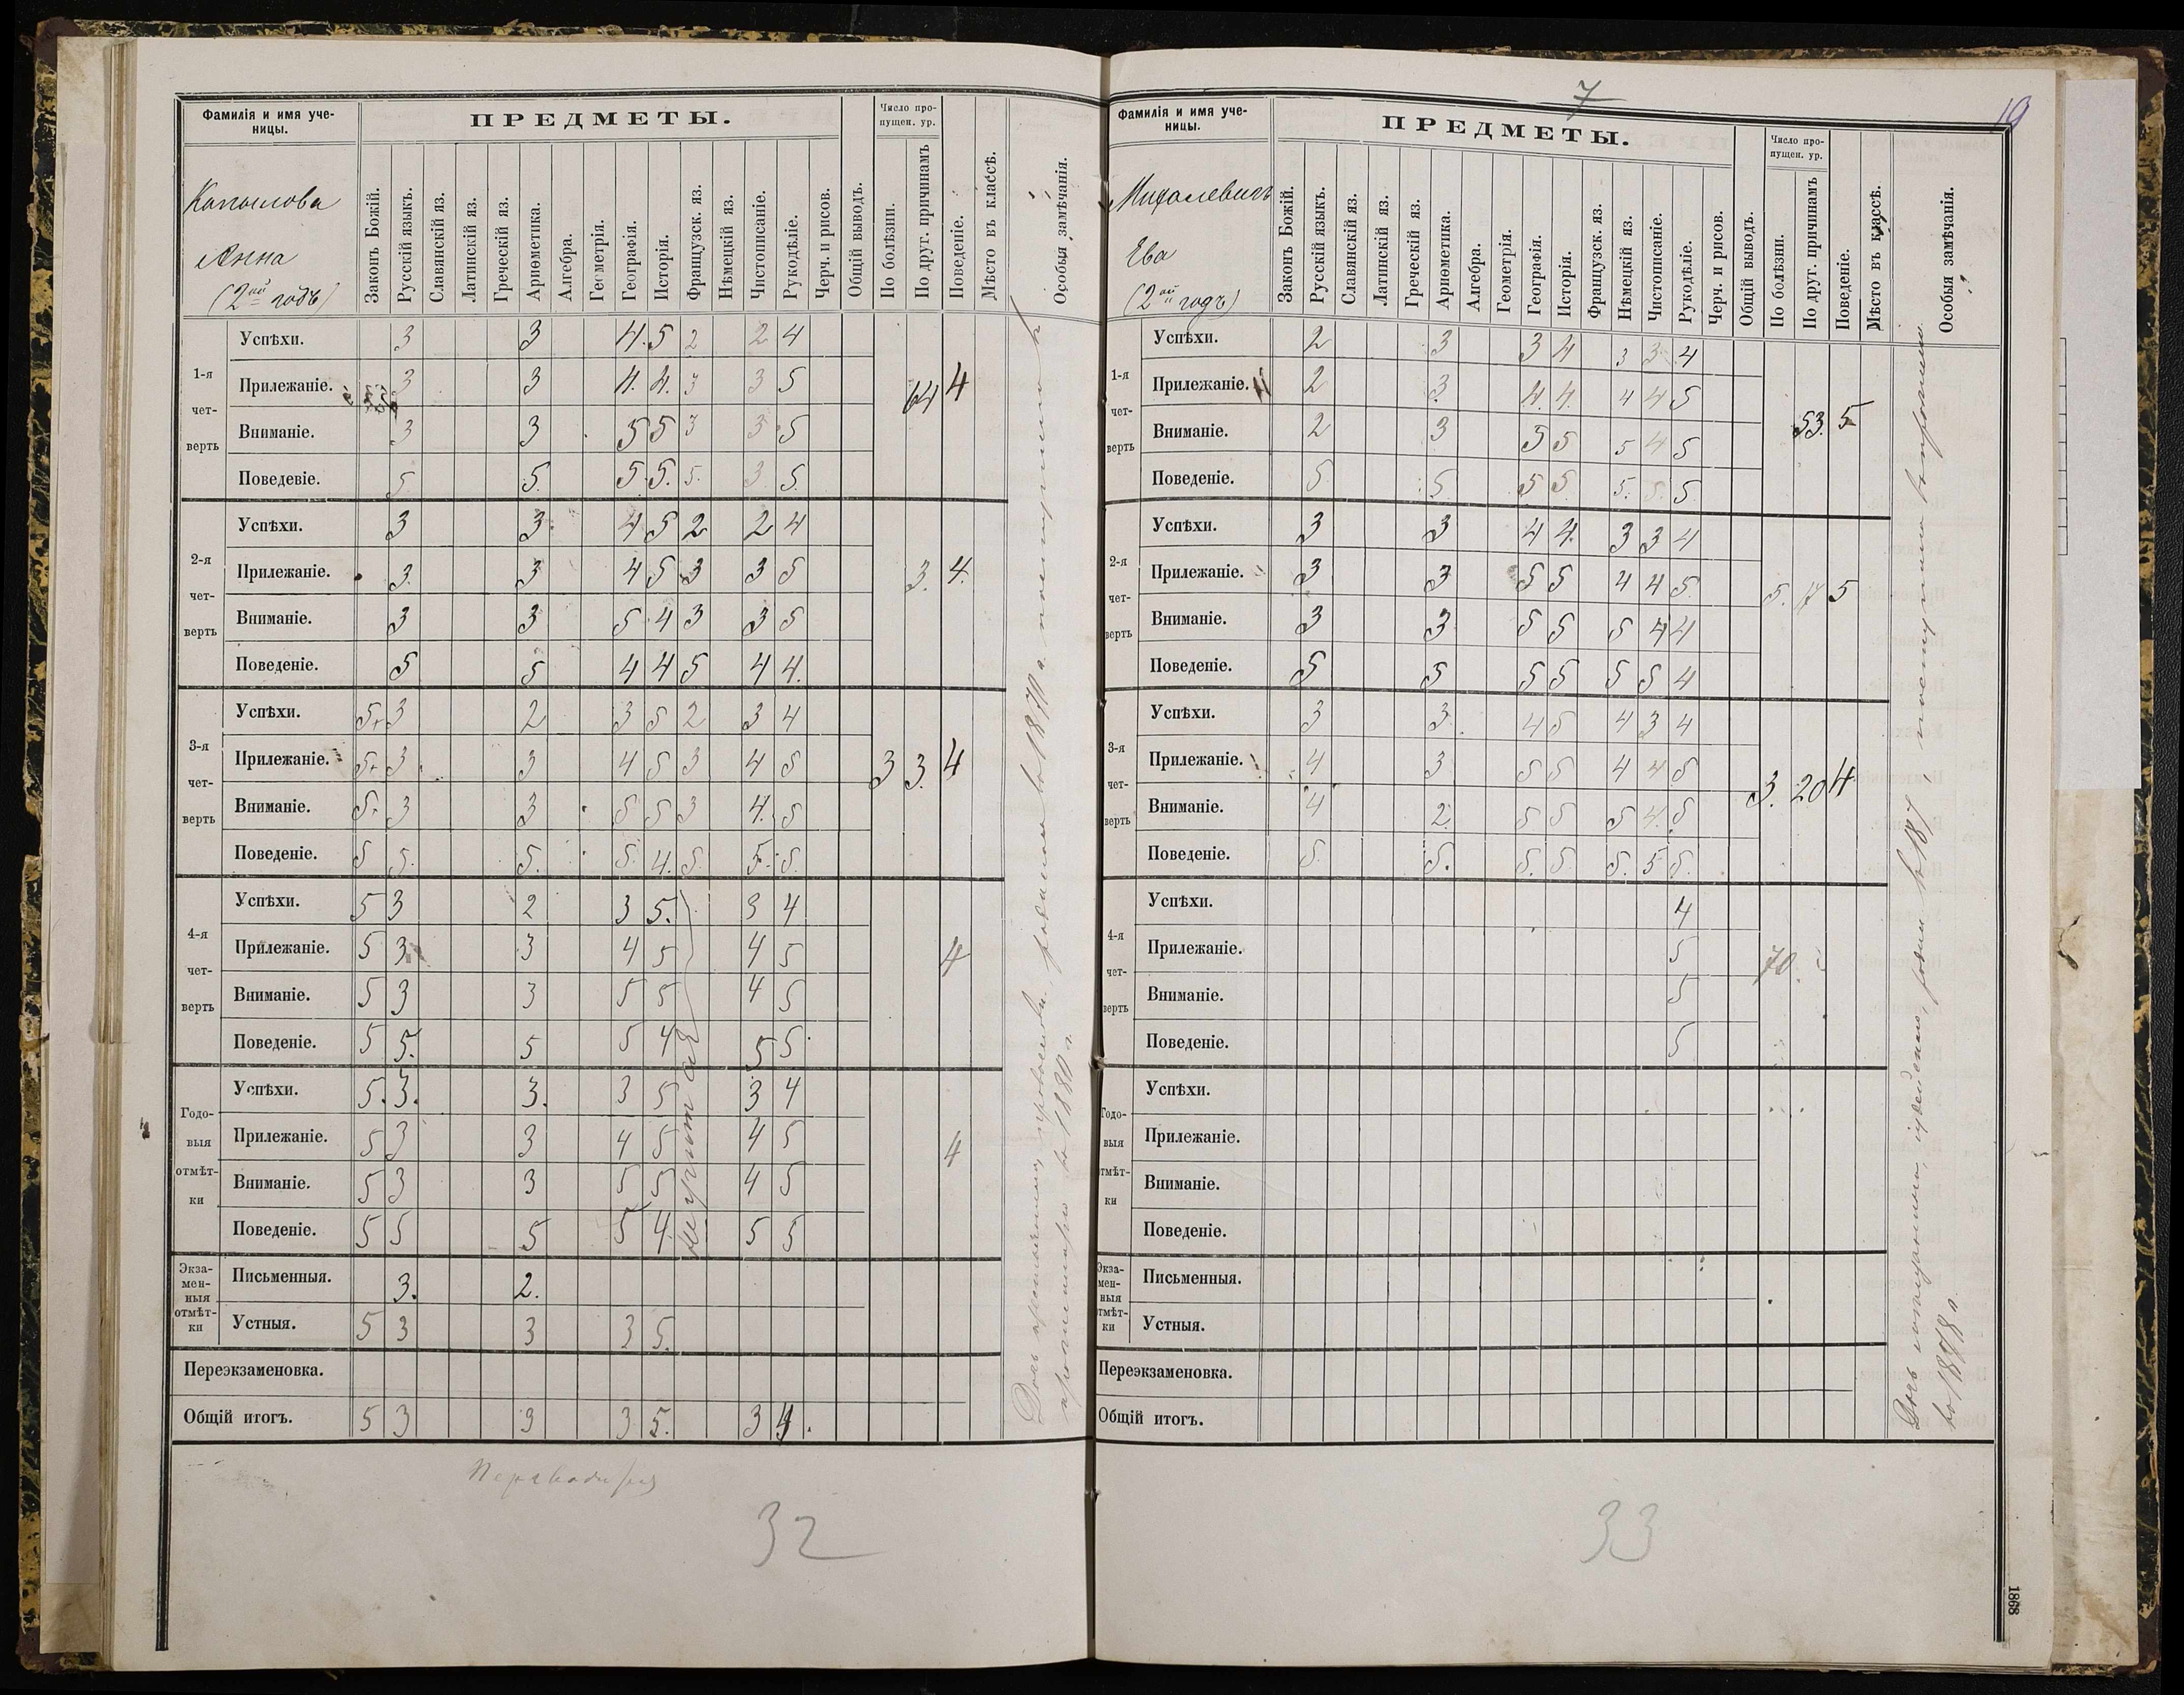 Фамилія и имя уче-
ницы.
ПРЕДМЕТЫ.
Число про-
пущен. ур.
Копылова
Анна
(2ой годъ)
Законъ Божій.
Русскій языкъ.
Славянскій яз.
Латинскій яз.
Греческій яз.
Ариѳметика.
Алгебра.
Геометрія.
Географія.
Исторія.
Французск. яз.
Нѣмецкій яз.
Чистописаніе.
Рукодѣліе.
Черч. и рисов.
Общій выводъ.
По болѣзни.
По друг. причинамъ
Поведеніе.
Мѣсто въ классѣ.
Особыя замѣчанія.
1-я
чет-
верть
Успѣхи. 3 3 4. 5 2 2 4
Прилежаніе. 3 3 4. 4. 3 3 5 64 4
Вниманіе. 3 3 5 5 3 3 5
Поведевіе. 5 5. 5. 5. 5. 3. 5.
2-я
чет-
верть
Успѣхи. 3 3. 4 5 2 2 4
Прилежаніе. 3. 3 4 5 3 3 5 3. 4.
Вниманіе. 3 3 5 4 3 3 5
Поведеніе. 5 5 4 4 5 4 4.
3-я
чет-
верть
Успѣхи. 5+ 3 2 3 5 2 3 4
Прилежаніе. 5+ 3. 3 4 5 3 4 5 3 3. 4
Вниманіе. 5+ 3 3 5 5 3 4. 5
Поведеніе. 5 5. 5. 5. 4. 5. 5. 5.
4-я
чет-
верть
Успѣхи. 5 3 2 3 5. 3 4
Прилежаніе. 5 3 3 4 5 4 5 4
Вниманіе. 5 3 3 5 5 4 5
Поведеніе. 5 5. 5 5 4 5 5
не учится
Годо-
выя
отмѣт-
ки
Успѣхи. 5. 3. 3. 3 5 3 4
Прилежаніе. 5 3 3 4 5 4 5 4
Вниманіе. 5 3 3 5 5 4 5
Поведеніе. 5 5 5 5 4. 5 5
Экза-
мен-
ныя
отмѣт-
ки
Письменныя. 3. 2.
Устныя. 5 3 3 3 5.
Переэкзаменовка.
Общій итогъ. 5 3 3 3 5. 3 4.
Дочь православн., родилась въ 1870 г. поступила въ
въ 1880 г.
Переводится
32
7
19
Фамилія и имя уче-
ницы.
ПРЕДМЕТЫ.
Число про-
пущен. ур.
Михалевичъ
Ева
(2ой годъ)
Законъ Божій.
Русскій языкъ.
Славянскій яз.
Латинскій яз.
Греческій яз.
Ариѳметика.
Алгебра.
Геометрія.
Географія.
Исторія.
Французск. яз.
Нѣмецкій яз.
Чистописаніе.
Рукодѣліе.
Черч. и рисов.
Общій выводъ.
По болѣзни.
По друг. причинамъ
Поведеніе.
Мѣсто въ классѣ.
Особыя замѣчанія.
1-я
чет-
верть
Успѣхи. 2 3 3 4 3 3 4
Прилежаніе. 2 3. 4. 4. 4 4 5
Вниманіе. 2 3 5 5 5 4 5 53. 5
Поведеніе. 5 5. 5 5. 5. 5. 5.
2-я
чет-
верть
Успѣхи. 3 3 4 4. 3 3 4
Прилежаніе. 3 3 5 5 4 4 5. 5. 17 5
Вниманіе. 3 3 5 5 5 4 4
Поведеніе. 5 5 5 5 5 5 4
3-я
чет-
верть
Успѣхи. 3 3. 4 5 4 3 4
Прилежаніе. 4 3 5 5 4 4 5 3. 20 4
Вниманіе. 4 2. 5 5 5 4. 5
Поведеніе. 5. 5. 5. 5. 5. 5 5.
4-я
чет-
верть
Успѣхи. 4
Прилежаніе. 5 70.
Вниманіе. 5
Поведеніе. 5
Годо-
выя
отмѣт-
ки
Успѣхи.
Прилежаніе.
Вниманіе.
Поведеніе.
Экза-
мен-
ныя
отмѣт-
ки
Письменныя.
Устныя.
Переэкзаменовка.
Общій итогъ.
Дочь іудейск., поступила въ
въ 1878 г.
33
1868